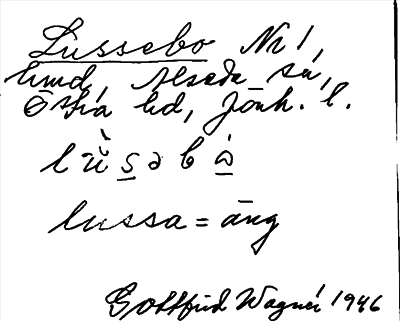 Lussebo Nr 1,
hmd, Alseda sn,
Östra hd, Jönk. l.
lǜs̲əbò̲
lussa = äng
Gottfrid Wagner 1946